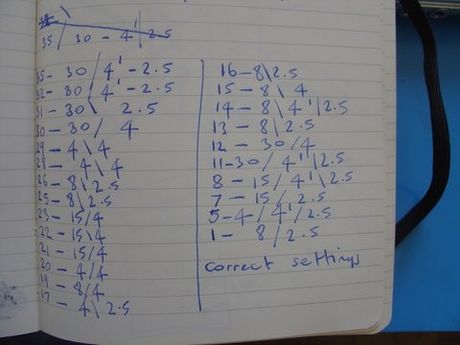 35/ 30 - 4'/2.5
35 - 30/4' - 2.5
32 - 30/4' - 2.5
31 - 30\ 2.5
30 - 30/ 4
29 - 4\4
28 - 4\4
26 - 8\2.5
25 - 8\2.5
23 - 15/4
22 - 15\4
21 - 15/4
20 - 4/4
19 - 8/4
17 - 4\2.5
16 - 8\2.5
15 - 8\ 4
14 - 8\4'/2.5
13 - 8\2.5
12 - 30/4
11 - 30/4'/2.5
8 - 15/4'\2.5
7 - 15/2.5
5 - 4/4'/2.5
1 - 8/2.5
correct settings